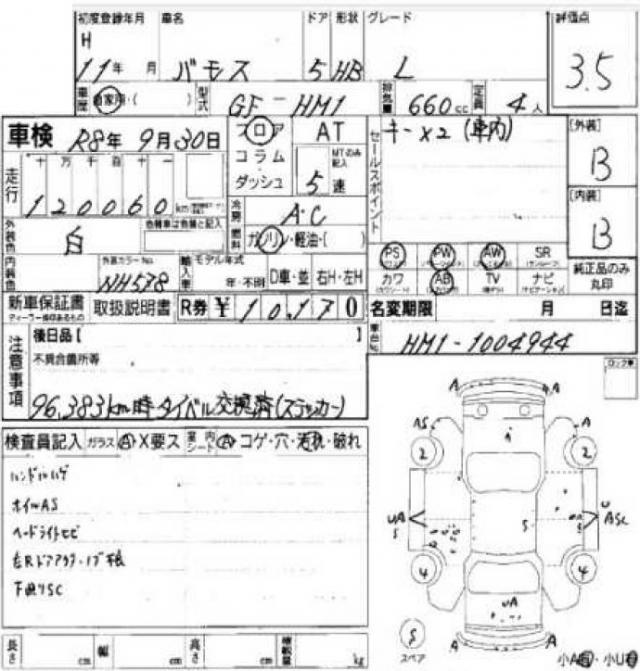 初度登録年月 車名 ドア 形状 グレード 評価点
H 11年 月 バモス 5 HB L 3.5
車歴 自家用・( ) 型式 GF-HM1 排気量 660cc 定員 4人
車検 R8年 9月30日 フロア AT セールスポイント キーX2 (車内) [外装] B
コラム・ MT のみ記入
ダッシュ 5速
走行 十万千百十一
120060 km
冷房 A・C [内装] B
外装色 白 色替車は色替と記入 燃料 ガソリン・軽油・( )
PS PW AW SR 純正品のみ丸印
カワ AB TV ナビ
内装色 外装カラーNo. NH578 輸入車 モデル年式 年・不明 D車・並 右H・左H
新車保証書 取扱説明書 R券 ¥10,170 名変期限 月 日迄
ディーラー捺印あるもの
注意事項 後日品[ ] 車台No. HM1-1004944
不具合箇所等
96,383km時タイベル交換済(ステッカー)
ロック車
検査員記入 ガラス A・X要ス 室内シート A・コゲ・穴・汚れ・破れ
ハンドルハゲ
ホイルAS
ヘードライトヒビ
下廻りSC
A A
AS A
2 2
UA S S U ASC
4 4
UA
S A A
スペア
長さ cm 幅 cm 高さ cm 積載量 kg